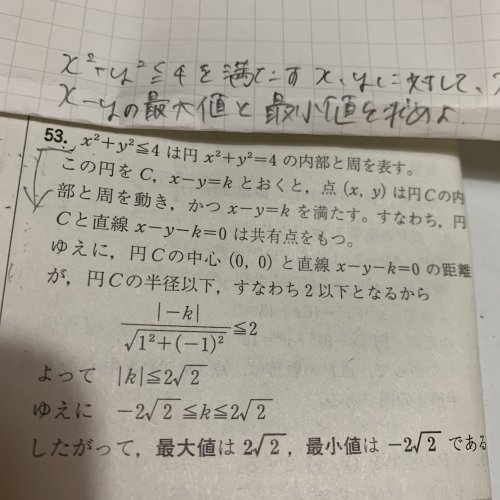 x²+y²≦4を満たす x、yに対して、
x−yの最大値と最小値を求めよ.
53. x²+y²≦4 は円 x²+y²=4 の内部と周を表す。
この円を C，x−y=k とおくと，点 (x, y) は円Cの内
部と周を動き，かつ x−y=k を満たす。すなわち，円
Cと直線 x−y−k=0 は共有点をもつ。
ゆえに，円Cの中心 (0, 0) と直線 x−y−k=0 の距離
が，円Cの半径以下，すなわち 2 以下となるから
|−k|/√(1²+(−1)²) ≦2
よって |k|≦2√2
ゆえに −2√2≦k≦2√2
したがって，最大値は 2√2，最小値は −2√2 である